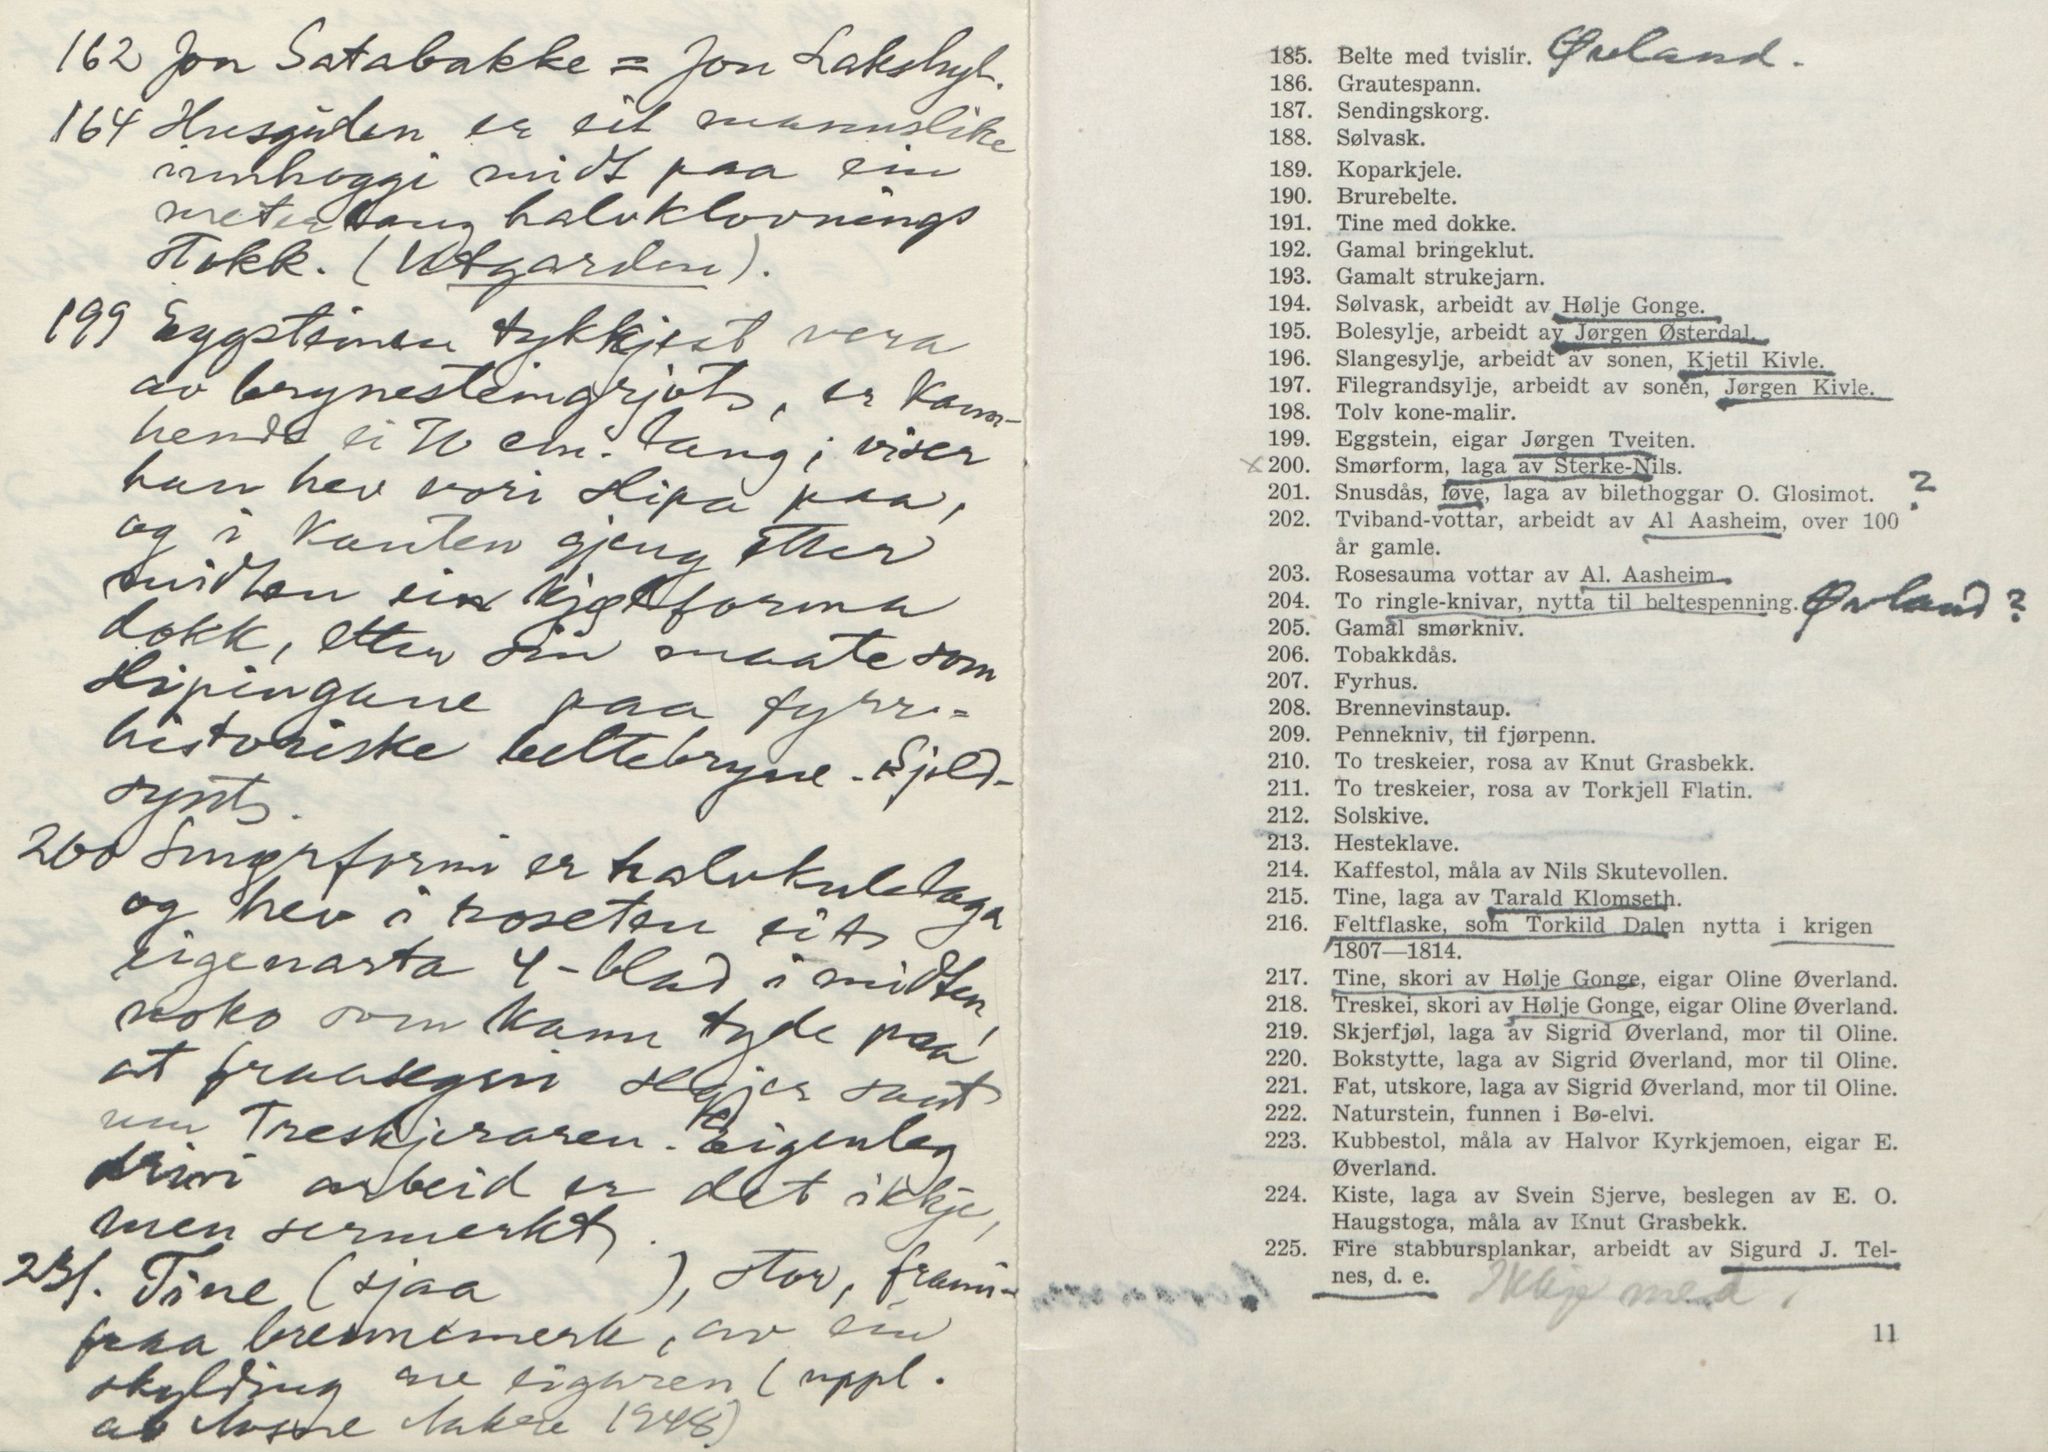 162 Jon Satabakke = Jon Lakshyl.
164 Husguden er eit mannslike
innhoggi midt paa ein
meterlang halvklovnings
stokk. (Utgarden).
199 Eggsteinen tykkjest vera
av brynesteingrjot, er kann-
hende ei 10 cm. lang; viser
han hev vori slipa paa,
og i kanten gjeng etter
midten ein kjølforma
dokk, etter sin maate som
slipingane paa fyrre-
historiske beltebryne. Sjeld-
synt.
200 Smørformi er halvkulelaga
og hev i roseten eit
eigenarta 4-blad i midten,
noko som kann tyde paa
at fraasegni segjer sant
um Treskjeraren. Eigenleg
drivi arbeid er det ikkje,
men sermerkt.
231. Tine (sjaa ), stor, fram-
paa brennemerk, av ein
skylding aae eigaren (uppl.
av Aasne Aakre 1948)
185. Belte med tvislir. Øverland.
186. Grautespann.
187. Sendingskorg.
188. Sølvask.
189. Koparkjele.
190. Brurebelte.
191. Tine med dokke.
192. Gamal bringeklut.
193. Gamalt strukejarn.
194. Sølvask, arbeidt av Hølje Gonge.
195. Bolesylje, arbeidt av Jørgen Østerdal.
196. Slangesylje, arbeidt av sonen, Kjetil Kivle.
197. Filegrandsylje, arbeidt av sonen, Jørgen Kivle.
198. Tolv kone-malir.
199. Eggstein, eigar Jørgen Tveiten.
x 200. Smørform, laga av Sterke-Nils.
201. Snusdås, løve, laga av bilethoggar O. Glosimot. ?
202. Tviband-vottar, arbeidt av Al Aasheim, over 100
år gamle.
203. Rosesauma vottar av Al. Aasheim.
204. To ringle-knivar, nytta til beltespenning. Øverland?
205. Gamal smørkniv.
206. Tobakkdås.
207. Fyrhus.
208. Brennevinstaup.
209. Pennekniv, til fjørpenn.
210. To treskeier, rosa av Knut Grasbekk.
211. To treskeier, rosa av Torkjell Flatin.
212. Solskive.
213. Hesteklave.
214. Kaffestol, måla av Nils Skutevollen.
215. Tine, laga av Tarald Klomseth.
216. Feltflaske, som Torkild Dalen nytta i krigen
1807—1814.
217. Tine, skori av Hølje Gonge, eigar Oline Øverland.
218. Treskei, skori av Hølje Gonge, eigar Oline Øverland.
219. Skjerfjøl, laga av Sigrid Øverland, mor til Oline.
220. Bokstytte, laga av Sigrid Øverland, mor til Oline.
221. Fat, utskore, laga av Sigrid Øverland, mor til Oline.
222. Naturstein, funnen i Bø-elvi.
223. Kubbestol, måla av Halvor Kyrkjemoen, eigar E.
Øverland.
224. Kiste, laga av Svein Sjerve, beslegen av E. O.
Haugstoga, måla av Knut Grasbekk.
225. Fire stabbursplankar, arbeidt av Sigurd J. Tel-
nes, d. e. Ikkje med.
11